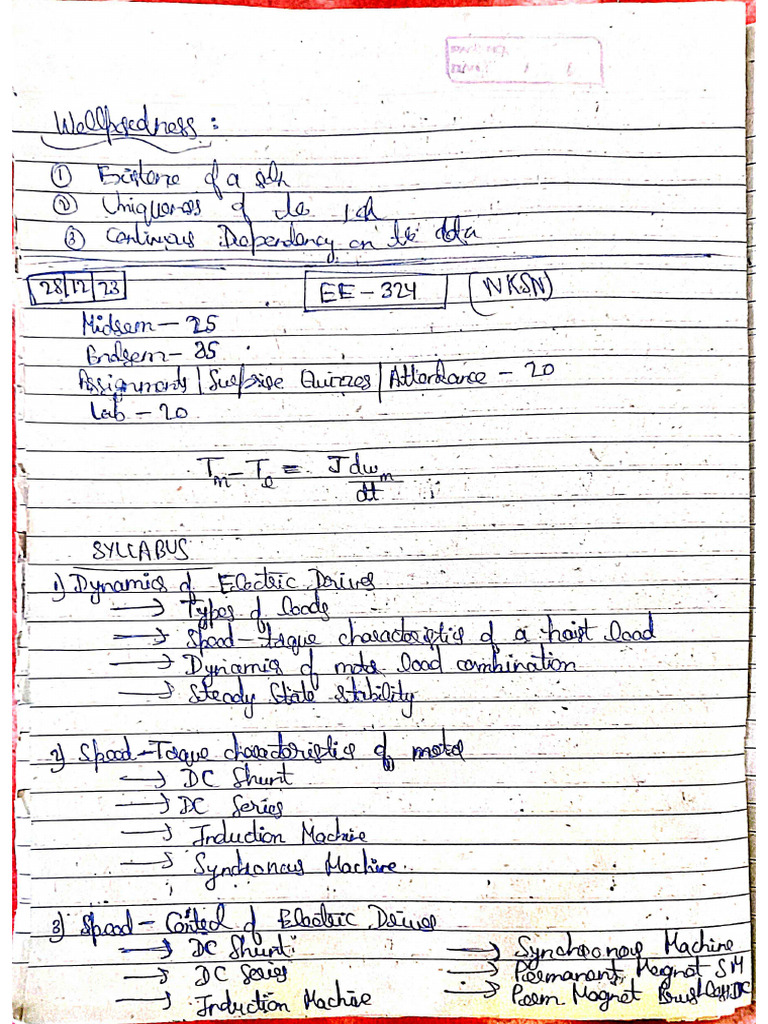 Wellposedness :
① Existence of a soln
② Uniqueness of the soln
③ Continuous Dependency on the data
28|12|23 EE-324 (NKSN)
Midsem - 25
Endsem - 35
Assignments | Surprise Quizzes | Attendance - 20
Lab - 20
Tm - Te = J dωm
dt
SYLLABUS
1) Dynamics of Electric Drives
→ Types of loads
→ Speed-torque characteristics of a hoist load
→ Dynamics of motor load combination
→ Steady State stability
2) Speed-Torque characteristics of motor
→ DC Shunt
→ DC Series
→ Induction Machine
→ Synchronous Machine.
3) Speed-Control of Electric Drives
→ DC Shunt
→ DC Series
→ Induction Machine
→ Synchronous Machine
→ Permanant Magnet SM
→ Perm Magnet Brushless DC